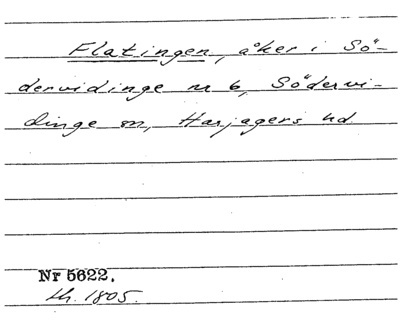 Flatingen, åker i Sö-
dervidinge nr 6, Södervi-
dinge sn, Harjagers hd.
Nr 5622.
th. 1805.